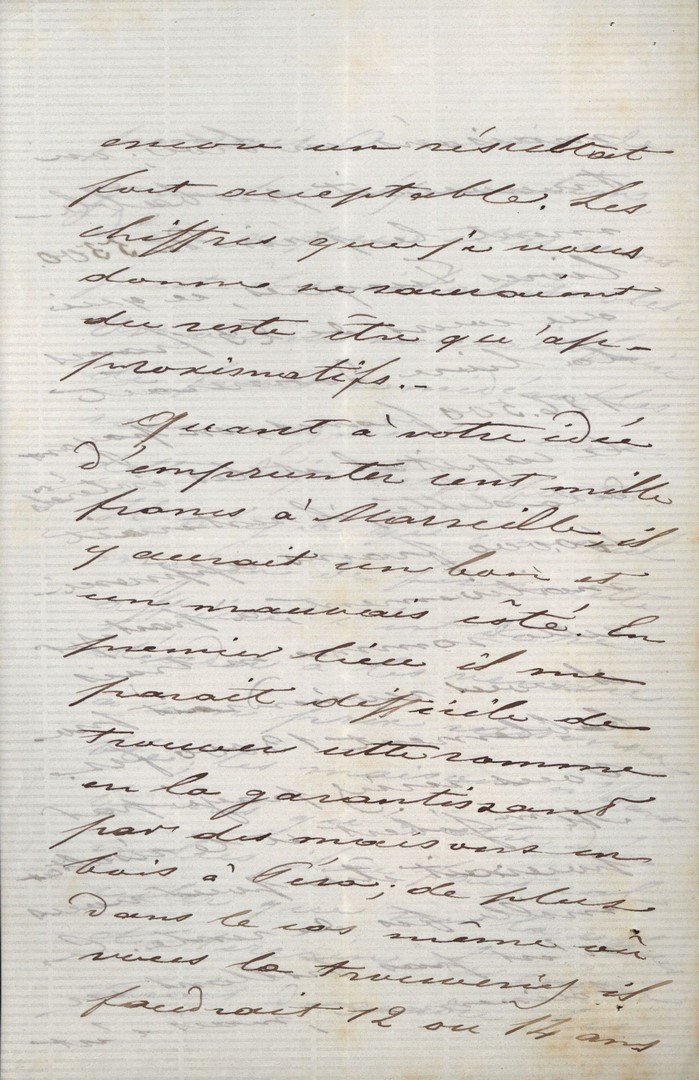 encore un résultat
fort acceptable. Les
chiffres que j'ai vous
donne ne sauraient
du reste être qu'ap-
proximatifs.-
Quant à votre idée
d'emprunter cent mille
francs à Marseille, il
y aurait un bon et
un mauvais côté. En
premier lieu il me
parait difficile de
trouver cette somme
en la garantissant
par des maisons en
bois à Péra; de plus
dans le cas même où
vous la trouveriez il
faudrait 12 ou 14 ans